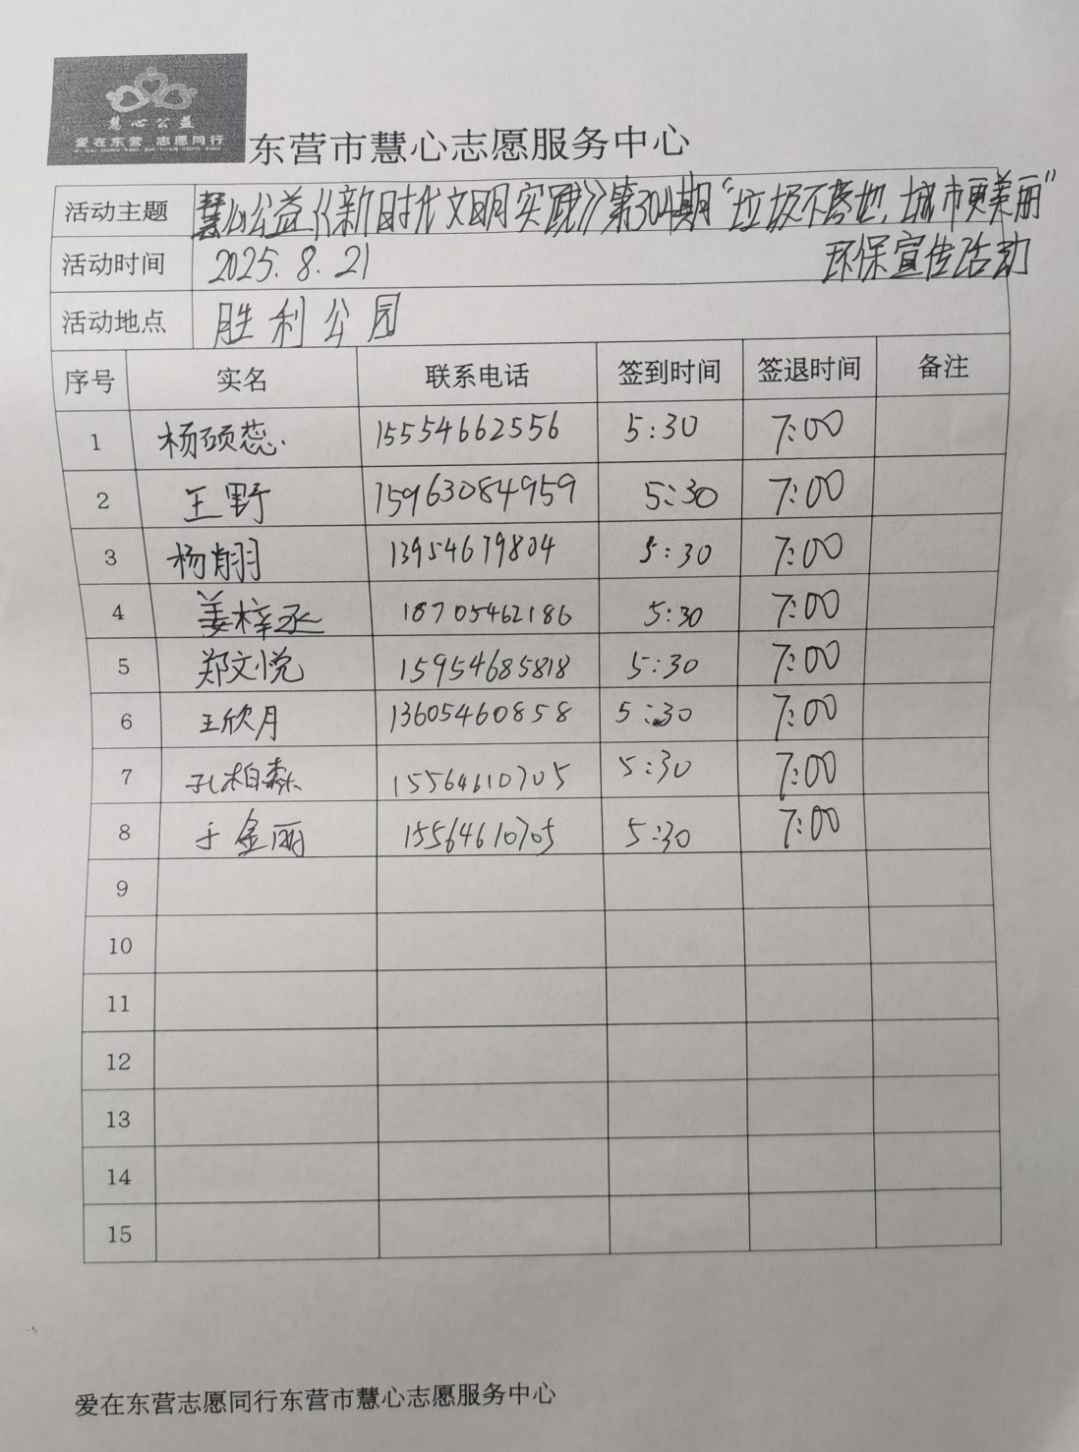 慧心公益
爱在东营 志愿同行
东营市慧心志愿服务中心
活动主题 慧心公益《新时代文明实践》第304期“垃圾不落地,城市更美丽”
环保宣传活动
活动时间 2025.8.21
活动地点 胜利公园
序号 实名 联系电话 签到时间 签退时间 备注
1 杨硕蕊 15554662556 5:30 7:00
2 王野 15963084959 5:30 7:00
3 杨翔 13954679804 5:30 7:00
4 姜梓丞 18705462186 5:30 7:00
5 郑文悦 15954685818 5:30 7:00
6 王欣月 13605460858 5:30 7:00
7 孔柏森 15564610705 5:30 7:00
8 于金丽 15564610705 5:30 7:00
9
10
11
12
13
14
15
爱在东营志愿同行东营市慧心志愿服务中心